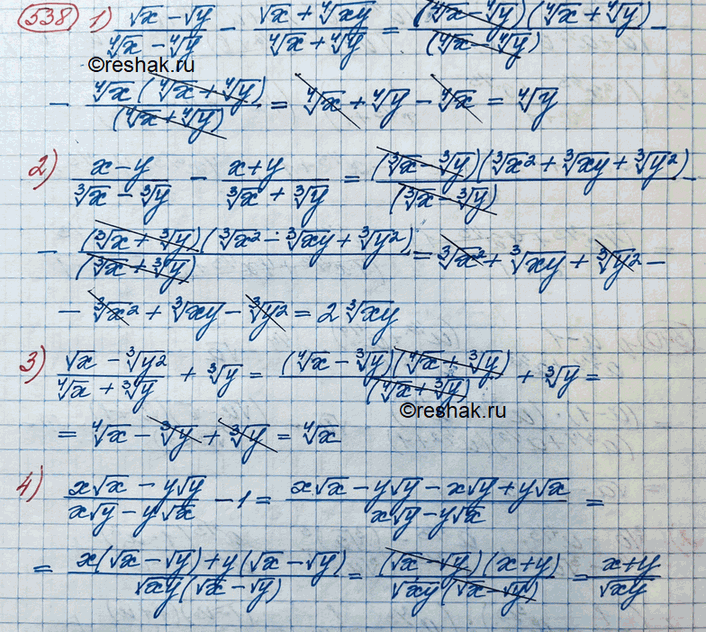 538 1) (√x − √y)/(⁴√x − ⁴√y) − (√x + ⁴√xy)/(⁴√x + ⁴√y) = ((⁴√x − ⁴√y)(⁴√x + ⁴√y))/(⁴√x − ⁴√y) −
©reshak.ru
− (⁴√x (⁴√x + ⁴√y))/(⁴√x + ⁴√y) = ⁴√x + ⁴√y − ⁴√x = ⁴√y
2) (x − y)/(³√x − ³√y) − (x + y)/(³√x + ³√y) = ((³√x − ³√y)(³√x² + ³√xy + ³√y²))/(³√x − ³√y) −
− ((³√x + ³√y)(³√x² − ³√xy + ³√y²))/(³√x + ³√y) = ³√x² + ³√xy + ³√y² −
− ³√x² + ³√xy − ³√y² = 2 ³√xy
3) (√x − ³√y²)/(⁴√x + ³√y) + ³√y = ((⁴√x − ³√y)(⁴√x + ³√y))/(⁴√x + ³√y) + ³√y =
©reshak.ru
= ⁴√x − ³√y + ³√y = ⁴√x
4) (x√x − y√y)/(x√y − y√x) − 1 = (x√x − y√y − x√y + y√x)/(x√y − y√x) =
= (x(√x − √y) + y(√x − √y))/(√xy (√x − √y)) = ((√x − √y)(x + y))/(√xy (√x − √y)) = (x + y)/√xy